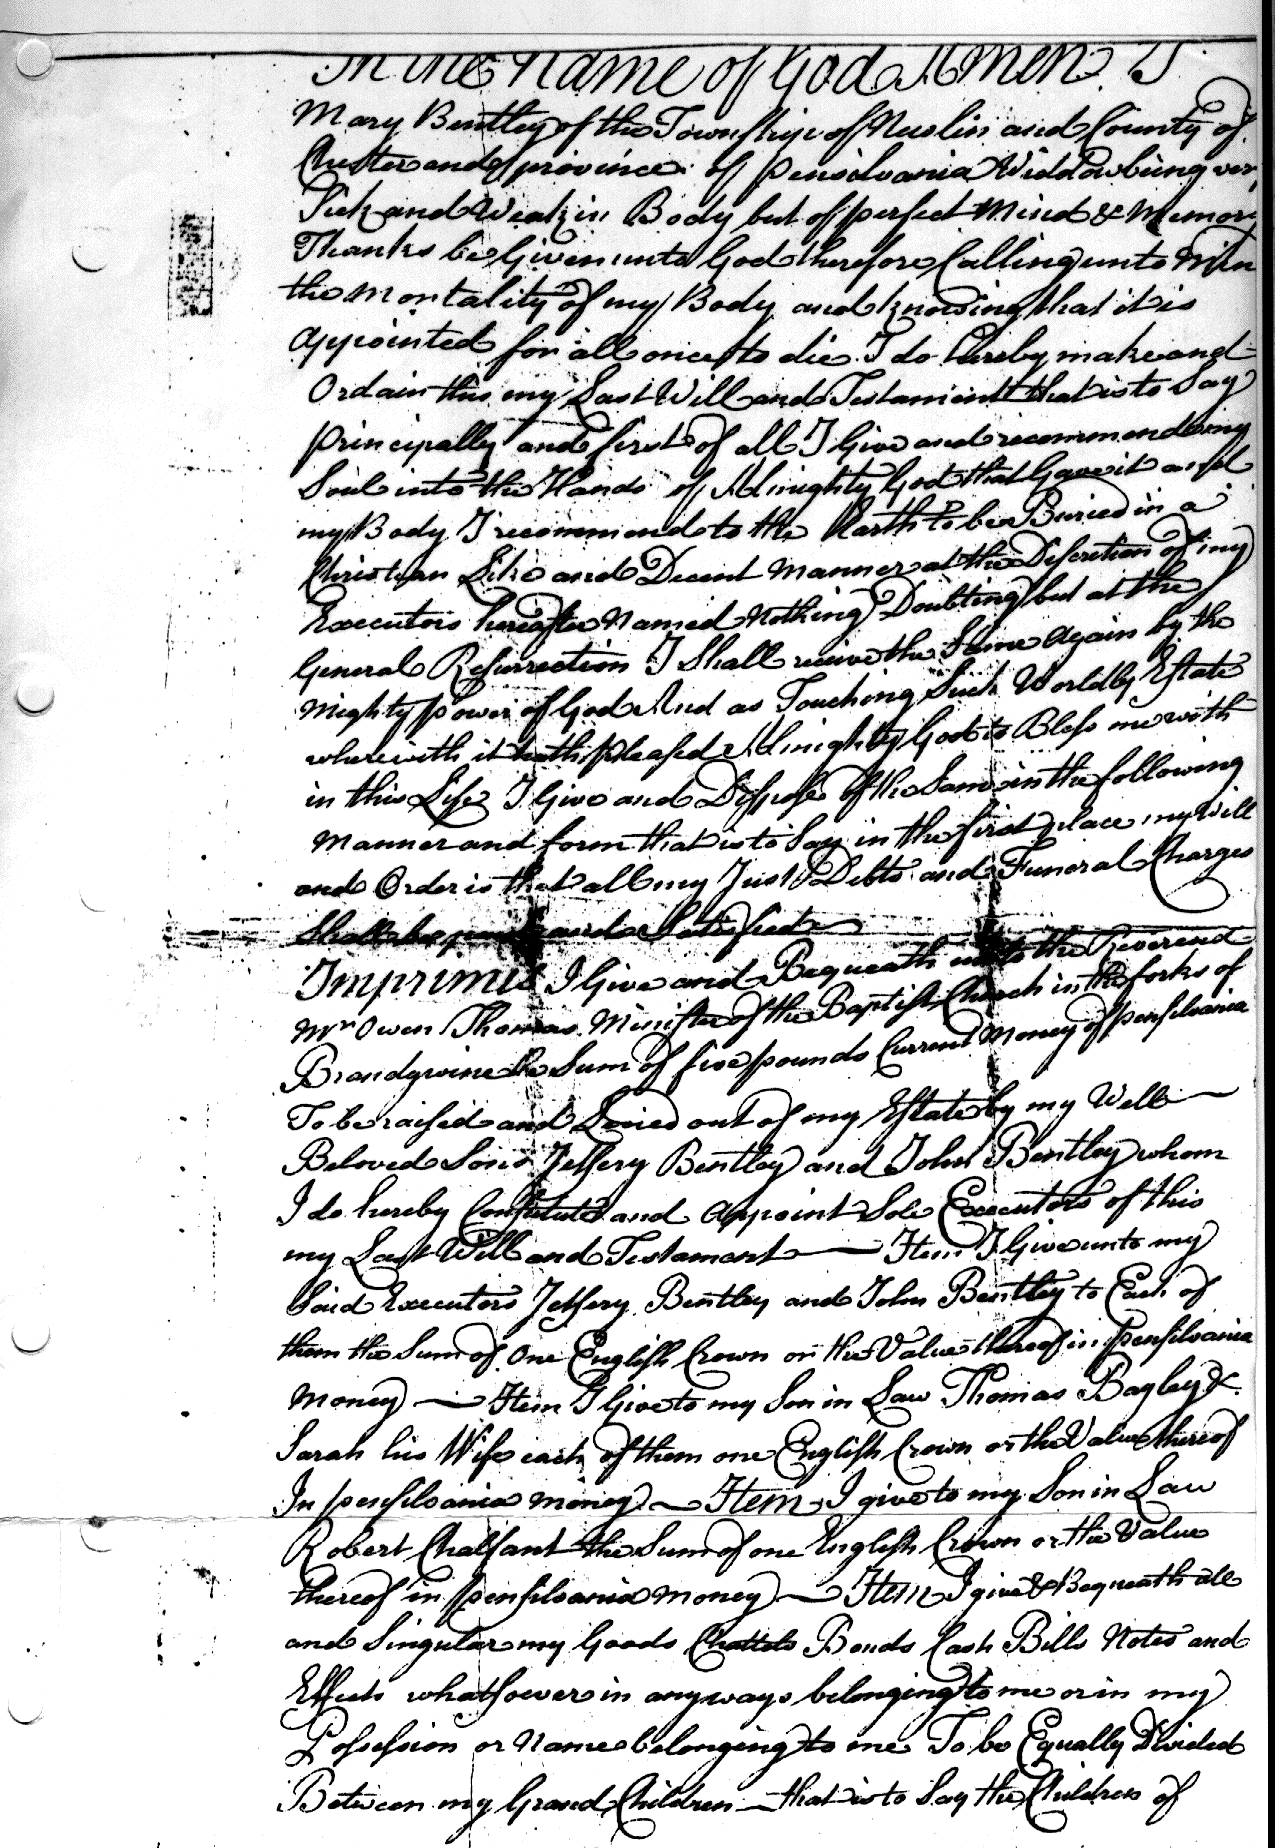 In the Name of God Amen. I
Mary Bentley of the Township of Nuslin and County of
Chester and province of pensilvania Widdow being very
Sick and Weak in Body but of perfect Mind & Memory
Thanks be Given unto God therefore Calling unto Min
the Mortality of my Body and knowing that it is
appointed for all once to die I do hereby make and
Ordain this my Last Will and Testament that is to Say
principally and first of all I Give and recommend my
Soul into the Hands of Almighty God that Gave it and
my Body I recommend to the Earth to be Buried in a
Christian Like and Decent Manner at the Discretion of my
Executors hereafter Named Nothing Doubting but at the
General Resurrection I Shall receive the Same again by the
Mighty power of God And as Touching Such Worldly Estate
wherewith it hath pleased Almighty God to Bless me with
in this Life I Give and Dispose of the Same in the following
Manner and form that is to Say in the first place my Will
and Order is that all my Just Debts and Funeral Charges
Shall be paid and Satisfied
Imprimis I Give and Bequeath unto the Reverend
Mr Owen Thomas Minister of the Baptist Church in the forks of
Brandywine the Sum of five pounds Current Money of pensilvania
To be raised and Levied out of my Estate by my Well
Beloved Sons Jeffery Bentley and John Bentley whom
I do hereby Constitute and appoint Sole Executors of this
my Last Will and Testament — Item I Give unto my
Said Executors Jeffery Bentley and John Bentley to Each of
them the Sum of One English Crown or the Value thereof in pensilvania
Money — Item I Give to my Son in Law Thomas Bayley &
Sarah his Wife each of them one English Crown or the Value thereof
In pensilvania money — Item I give to my Son in Law
Robert Chalfant the Sum of one English Crown or the Value
thereof in pensilvania money — Item I give & Bequeath all
and Singular my Goods Chattels Bonds Cash Bills Notes and
Effects whatsoever in anyways belonging to me or in my
Possession or Name belonging to me To be Equally Divided
Between my Grand Children — that is to Say the Children of